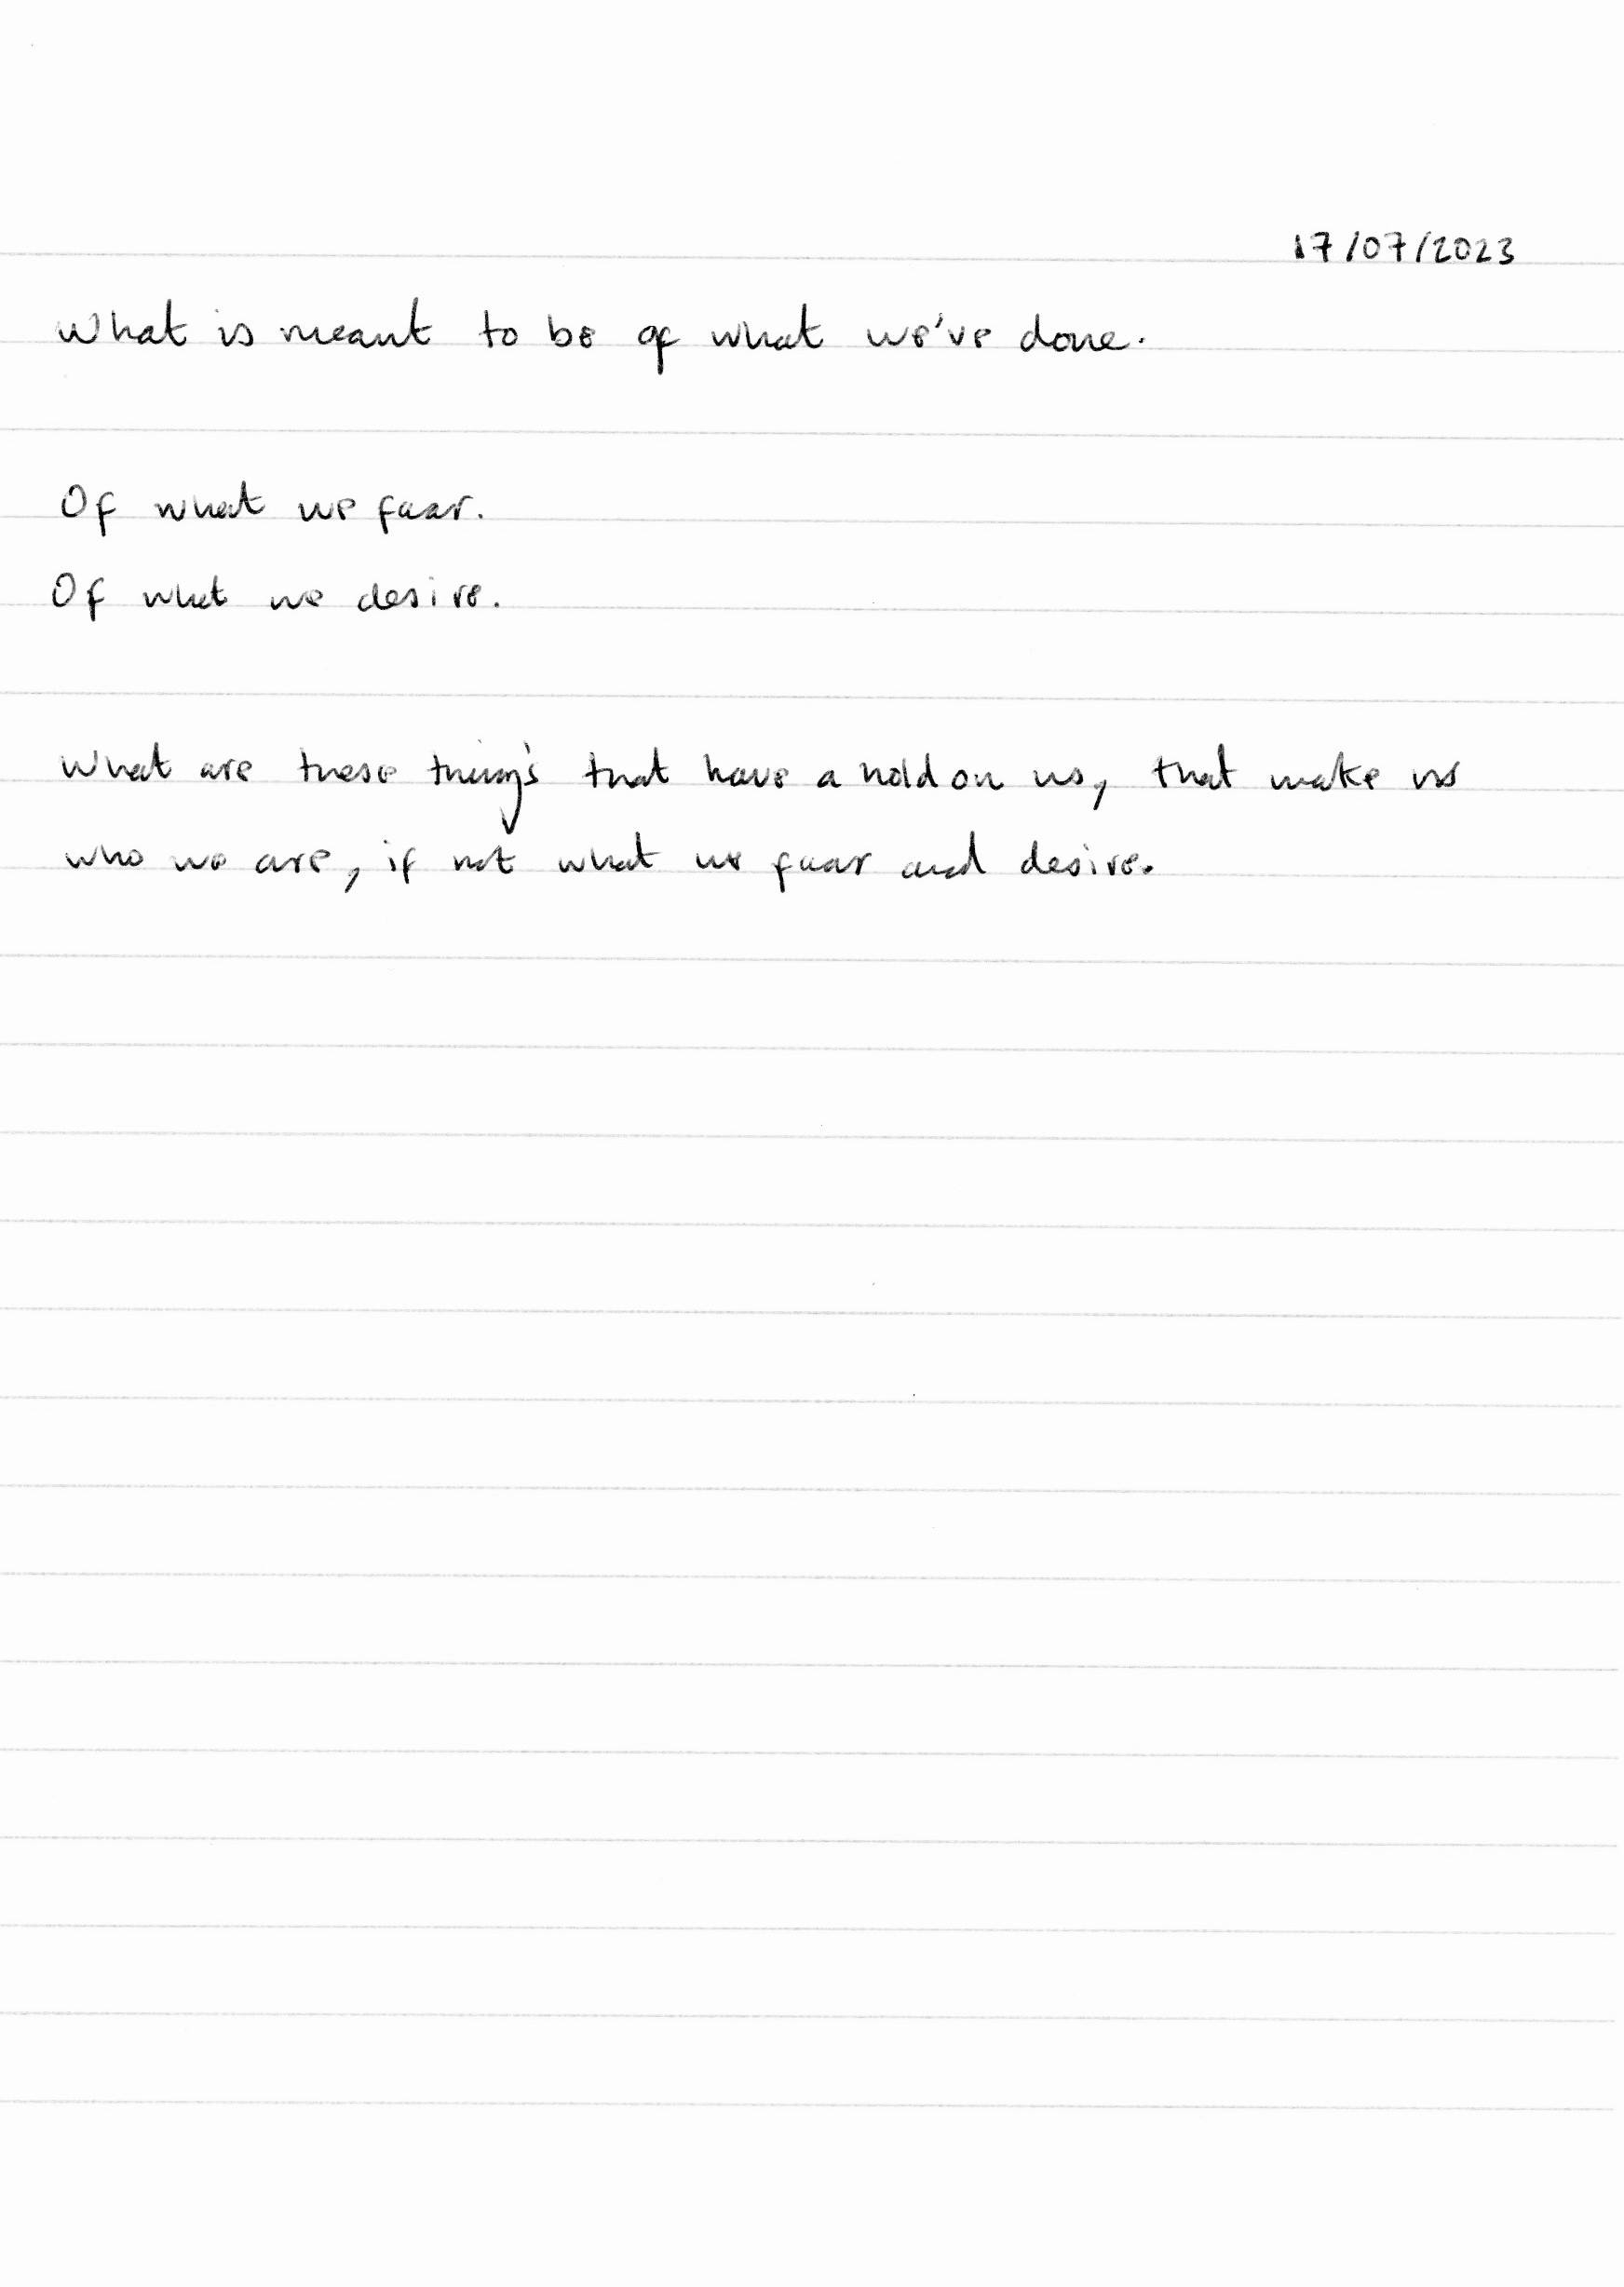 17/07/2023
What is meant to be of what we've done.
Of what we fear.
Of what we desire.
What are these thing's that have a hold on us, that make us
who we are, if not what we fear and desire.